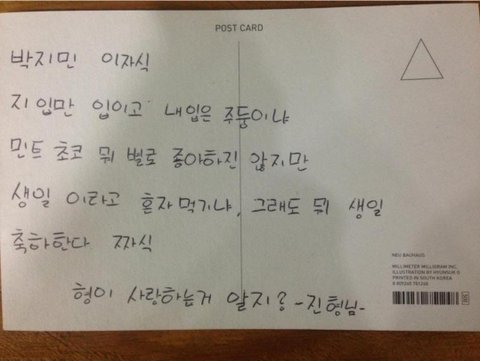 POST CARD
박지민 이자식
지 입만 입이고 내입은 주둥이냐
민트 초코 뭐 별로 좋아하진 않지만
생일 이라고 혼자먹기냐, 그래도 뭐 생일
축하한다 짜식
형이 사랑하는거 알지? -진형님-
NEU BAUHAUS
MILLIMETER MILLIGRAM INC.
ILLUSTRATION BY HYUNSUK O
PRINTED IN SOUTH KOREA